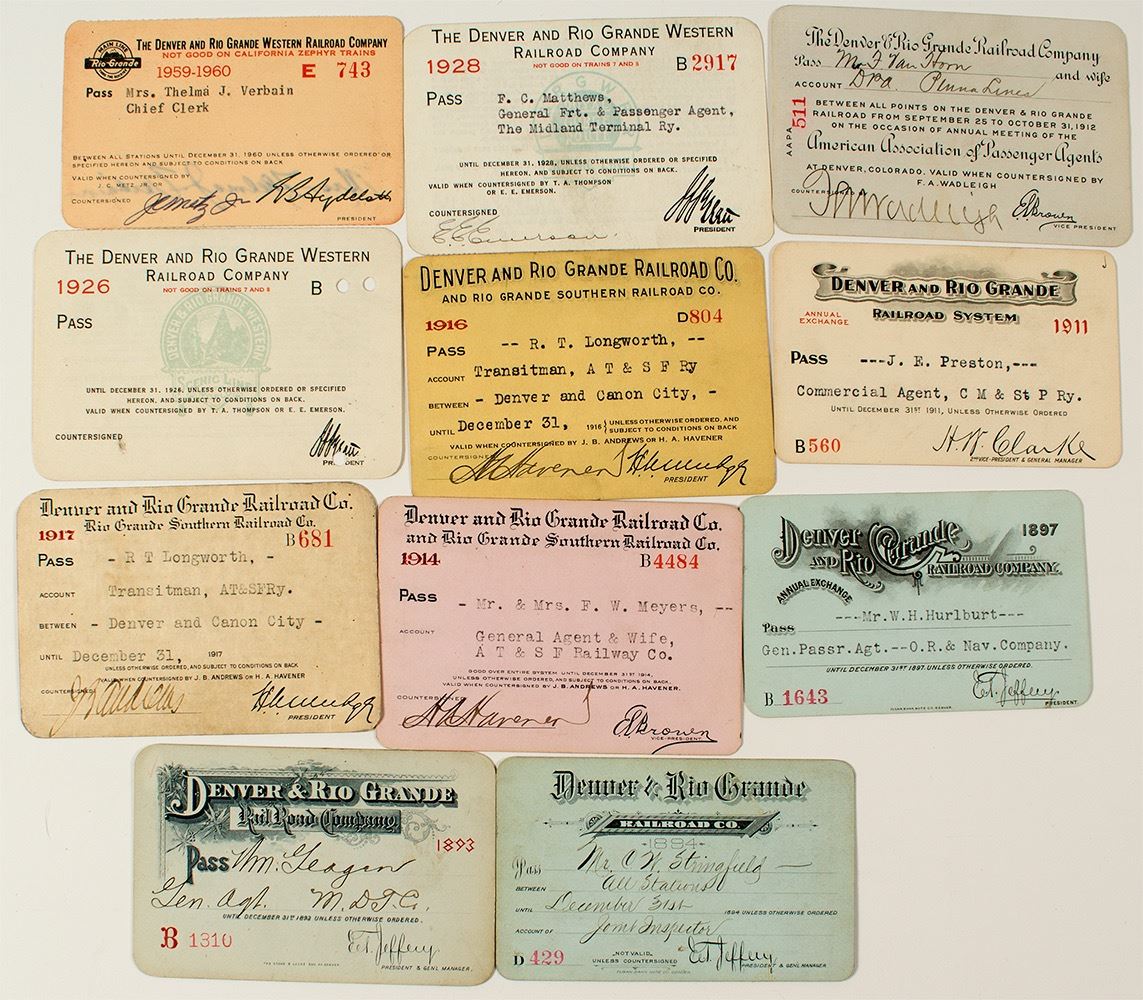 MAIN LINE
Rio Grande
THE DENVER AND RIO GRANDE WESTERN RAILROAD COMPANY
NOT GOOD ON CALIFORNIA ZEPHYR TRAINS
1959-1960 E 743
PASS Mrs. Thelma J. Verbain
Chief Clerk
BETWEEN ALL STATIONS UNTIL DECEMBER 31, 1960 UNLESS OTHERWISE ORDERED OR
SPECIFIED HEREON AND SUBJECT TO CONDITIONS ON BACK.
VALID WHEN COUNTERSIGNED BY
J. C. METZ, JR. OR
COUNTERSIGNED
JC Metz Jr
PRESIDENT
THE DENVER AND RIO GRANDE WESTERN
RAILROAD COMPANY
1928 NOT GOOD ON TRAINS 7 AND 8 B 2917
PASS F. C. Matthews,
General Frt. & Passenger Agent,
The Midland Terminal Ry.
UNTIL DECEMBER 31, 1928, UNLESS OTHERWISE ORDERED OR SPECIFIED
HEREON, AND SUBJECT TO CONDITIONS ON BACK.
VALID WHEN COUNTERSIGNED BY T. A. THOMPSON
OR E. E. EMERSON.
COUNTERSIGNED
E E Emerson
PRESIDENT
The Denver & Rio Grande Railroad Company
Pass Mr F Van Horn and wife
ACCOUNT DPA Penna Lines
AAPA 511
BETWEEN ALL POINTS ON THE DENVER & RIO GRANDE
RAILROAD FROM SEPTEMBER 25 TO OCTOBER 31, 1912
ON THE OCCASION OF ANNUAL MEETING OF THE
American Association of Passenger Agents
AT DENVER, COLORADO. VALID WHEN COUNTERSIGNED BY
F. A. WADLEIGH
COUNTERSIGNED
FA Wadleigh
E Brown
VICE PRESIDENT
THE DENVER AND RIO GRANDE WESTERN
RAILROAD COMPANY
1926 NOT GOOD ON TRAINS 7 AND 8 B
PASS
DENVER & RIO GRANDE WESTERN
SCENIC LINE
UNTIL DECEMBER 31, 1926, UNLESS OTHERWISE ORDERED OR SPECIFIED
HEREON, AND SUBJECT TO CONDITIONS ON BACK.
VALID WHEN COUNTERSIGNED BY T. A. THOMPSON OR E. E. EMERSON.
COUNTERSIGNED
PRESIDENT
DENVER AND RIO GRANDE RAILROAD CO.
AND RIO GRANDE SOUTHERN RAILROAD CO.
1916 D804
PASS -- R. T. Longworth, --
ACCOUNT Transitman, A T & S F Ry
BETWEEN - Denver and Canon City, -
UNTIL December 31, 1916 { UNLESS OTHERWISE ORDERED, AND
SUBJECT TO CONDITIONS ON BACK
VALID WHEN COUNTERSIGNED BY J. B. ANDREWS OR H. A. HAVENER
COUNTERSIGNED
HA Havener
PRESIDENT
DENVER AND RIO GRANDE
RAILROAD SYSTEM
ANNUAL
EXCHANGE 1911
PASS ---J. E. Preston,---
Commercial Agent, C M & St P Ry.
UNTIL DECEMBER 31ST 1911, UNLESS OTHERWISE ORDERED
B560 H.W. Clarke
2ND VICE-PRESIDENT & GENERAL MANAGER
Denver and Rio Grande Railroad Co.
Rio Grande Southern Railroad Co.
1917 B681
PASS - R T Longworth, -
ACCOUNT Transitman, AT&SFRy.
BETWEEN - Denver and Canon City -
UNTIL December 31, 1917
UNLESS OTHERWISE ORDERED, AND SUBJECT TO CONDITIONS ON BACK
VALID WHEN COUNTERSIGNED BY J. B. ANDREWS OR H. A. HAVENER
COUNTERSIGNED
JB Andrews
PRESIDENT
Denver and Rio Grande Railroad Co.
and Rio Grande Southern Railroad Co.
1914 B4484
PASS - Mr. & Mrs. F. W. Meyers, --
ACCOUNT General Agent & Wife,
A T & S F Railway Co.
GOOD OVER ENTIRE SYSTEM UNTIL DECEMBER 31ST 1914,
UNLESS OTHERWISE ORDERED, AND SUBJECT TO CONDITIONS ON BACK.
VALID WHEN COUNTERSIGNED BY J. B. ANDREWS OR H. A. HAVENER.
COUNTERSIGNED
HA Havener
E Brown
VICE-PRESIDENT
Denver and Rio Grande 1897
RAILROAD COMPANY.
ANNUAL EXCHANGE
Pass ---Mr.W.H.Hurlburt---
Gen.Passr.Agt.--O.R.& Nav.Company.
UNTIL DECEMBER 31ST 1897. UNLESS OTHERWISE ORDERED.
B 1643 E.T. Jeffery
PRESIDENT
DENVER & RIO GRANDE
Rail Road Company
1893
Pass Wm. Geagan
Gen. Agt. M.D.T.Co.
UNTIL DECEMBER 31ST 1893 UNLESS OTHERWISE ORDERED.
B 1310 E.T. Jeffery
PRESIDENT & GENL MANAGER.
Denver & Rio Grande
RAILROAD CO.
-1894-
Pass Mr. C W. Stringfield
BETWEEN All Stations
UNTIL December 31st 1894 UNLESS OTHERWISE ORDERED
ACCOUNT OF Joint Inspector
D 429 NOT VALID
UNLESS COUNTERSIGNED
E.T. Jeffery
PRESIDENT & GENL MANAGER